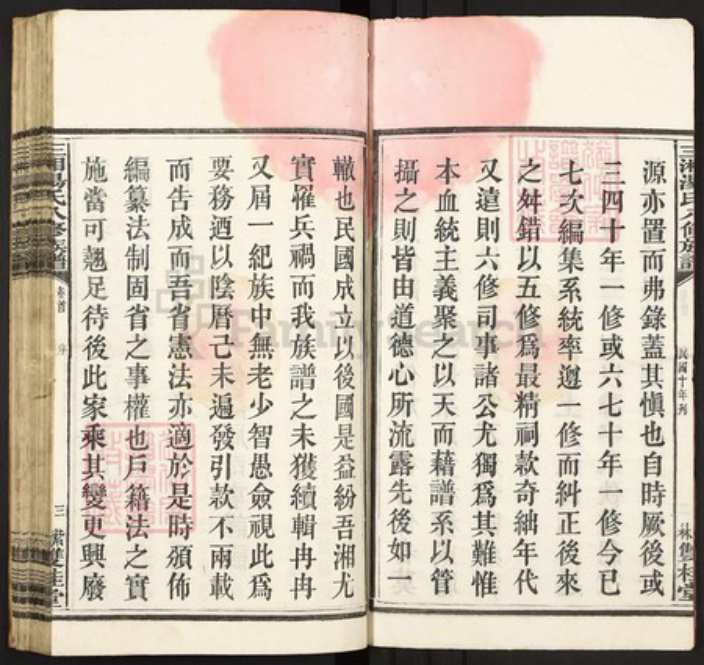 三湘湯氏八修族譜
民國十年列
林雙桂堂
源亦置而弗錄蓋其慎也自時厥後或
三四十年一修或六七十年一修今已
七次編集系統率遵一修而糾正後來
之舛錯以五修爲最精祠款奇絀年代
又遠則六修司事諸公尤獨爲其難惟
本血統主義聚之以天而藉譜系以管
攝之則皆由道德心所流露先後如一
轍也民國成立以後國是益紛吾湘尤
實罹兵禍而我族譜之未獲續輯冉冉
又屆一紀族中無老少智愚僉視此爲
要務迺以陰曆己未遍發引款不兩載
而告成而吾省憲法亦適於是時頒佈
編纂法制固省之事權也戶籍法之實
施當可翹足待後此家乘其變更興廢
三湘湯氏八修族譜
卷首
序
三
雙桂堂
FamilySearch